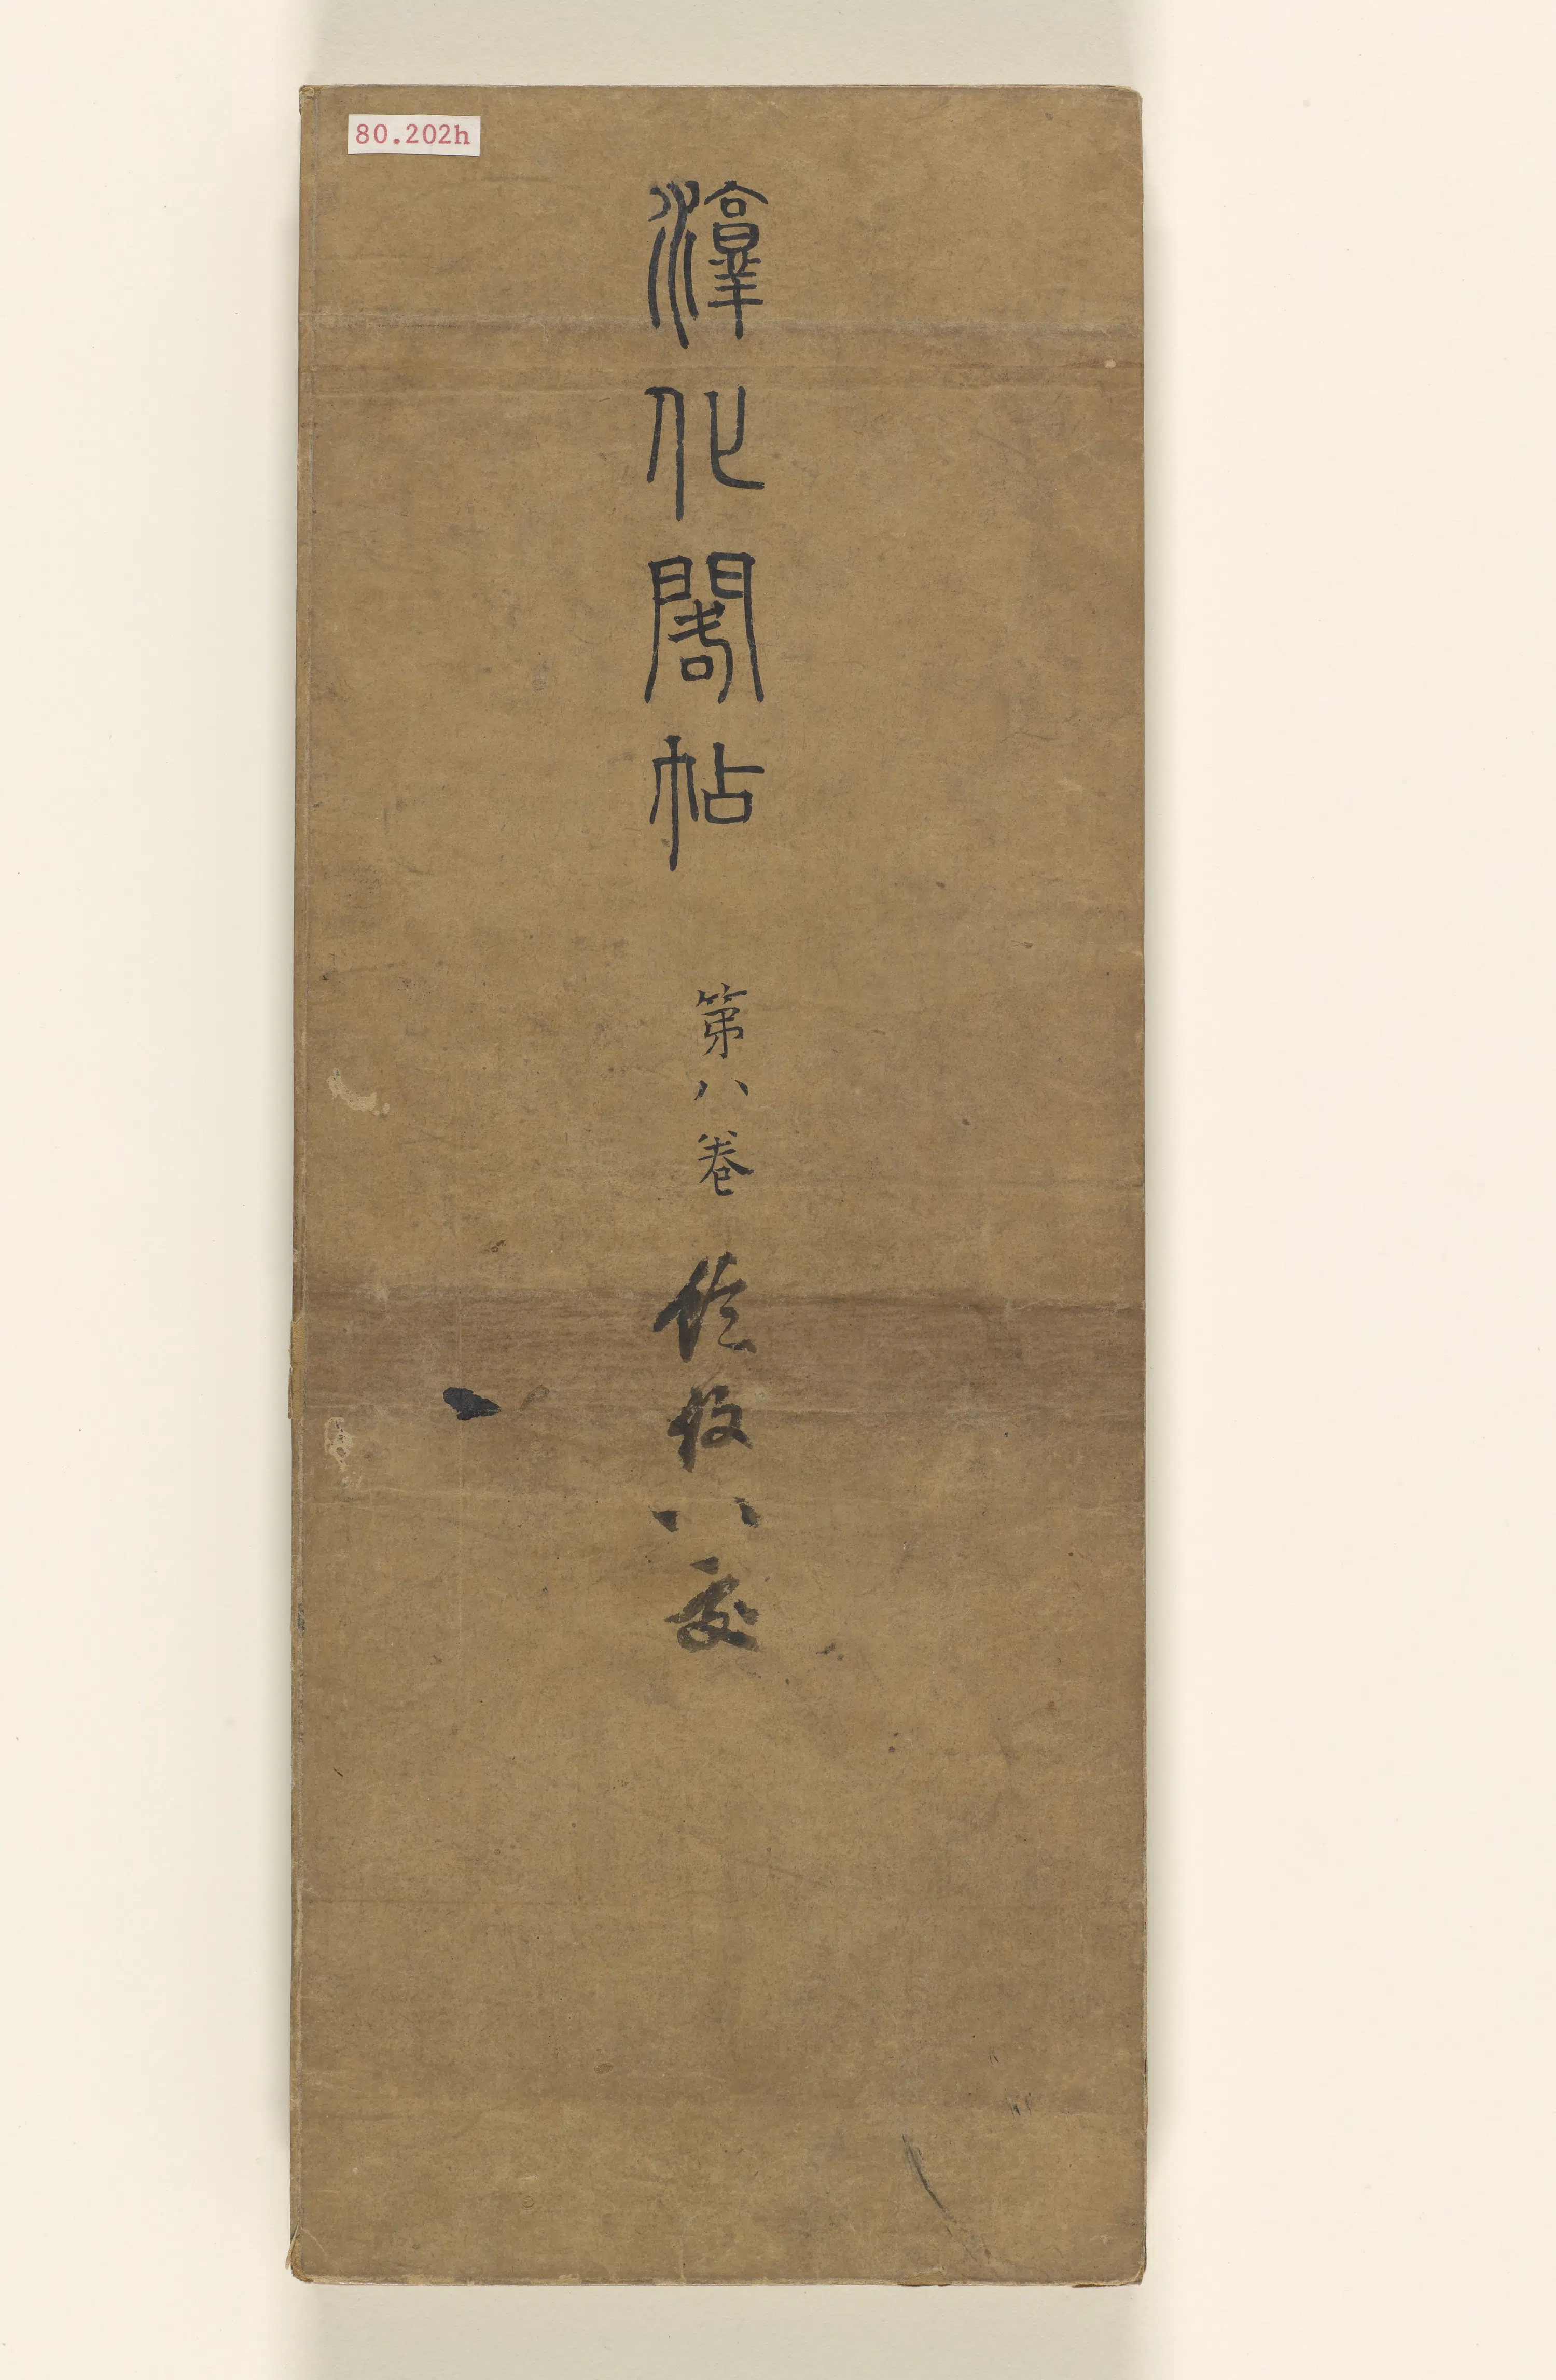 80.202h
淳化閣帖
第八卷
八